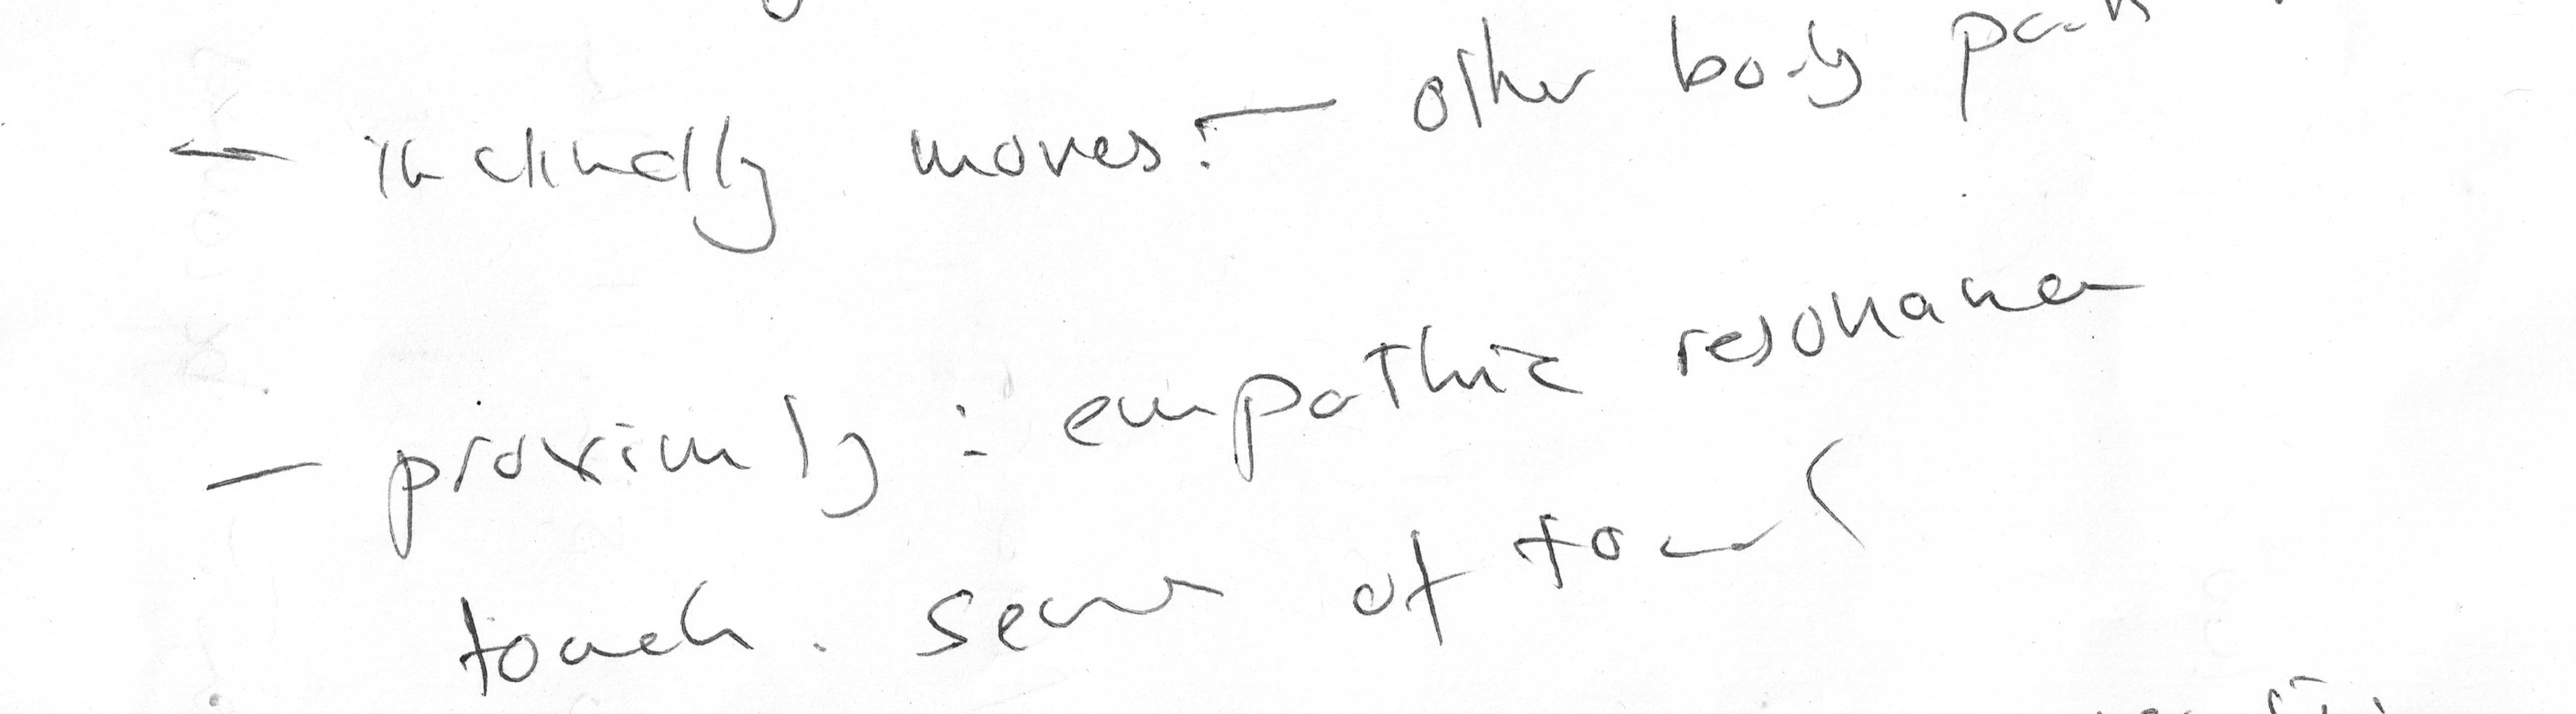 — incidentally moves: — other body parts
— proximity : empathic resonance
touch. sense of touch